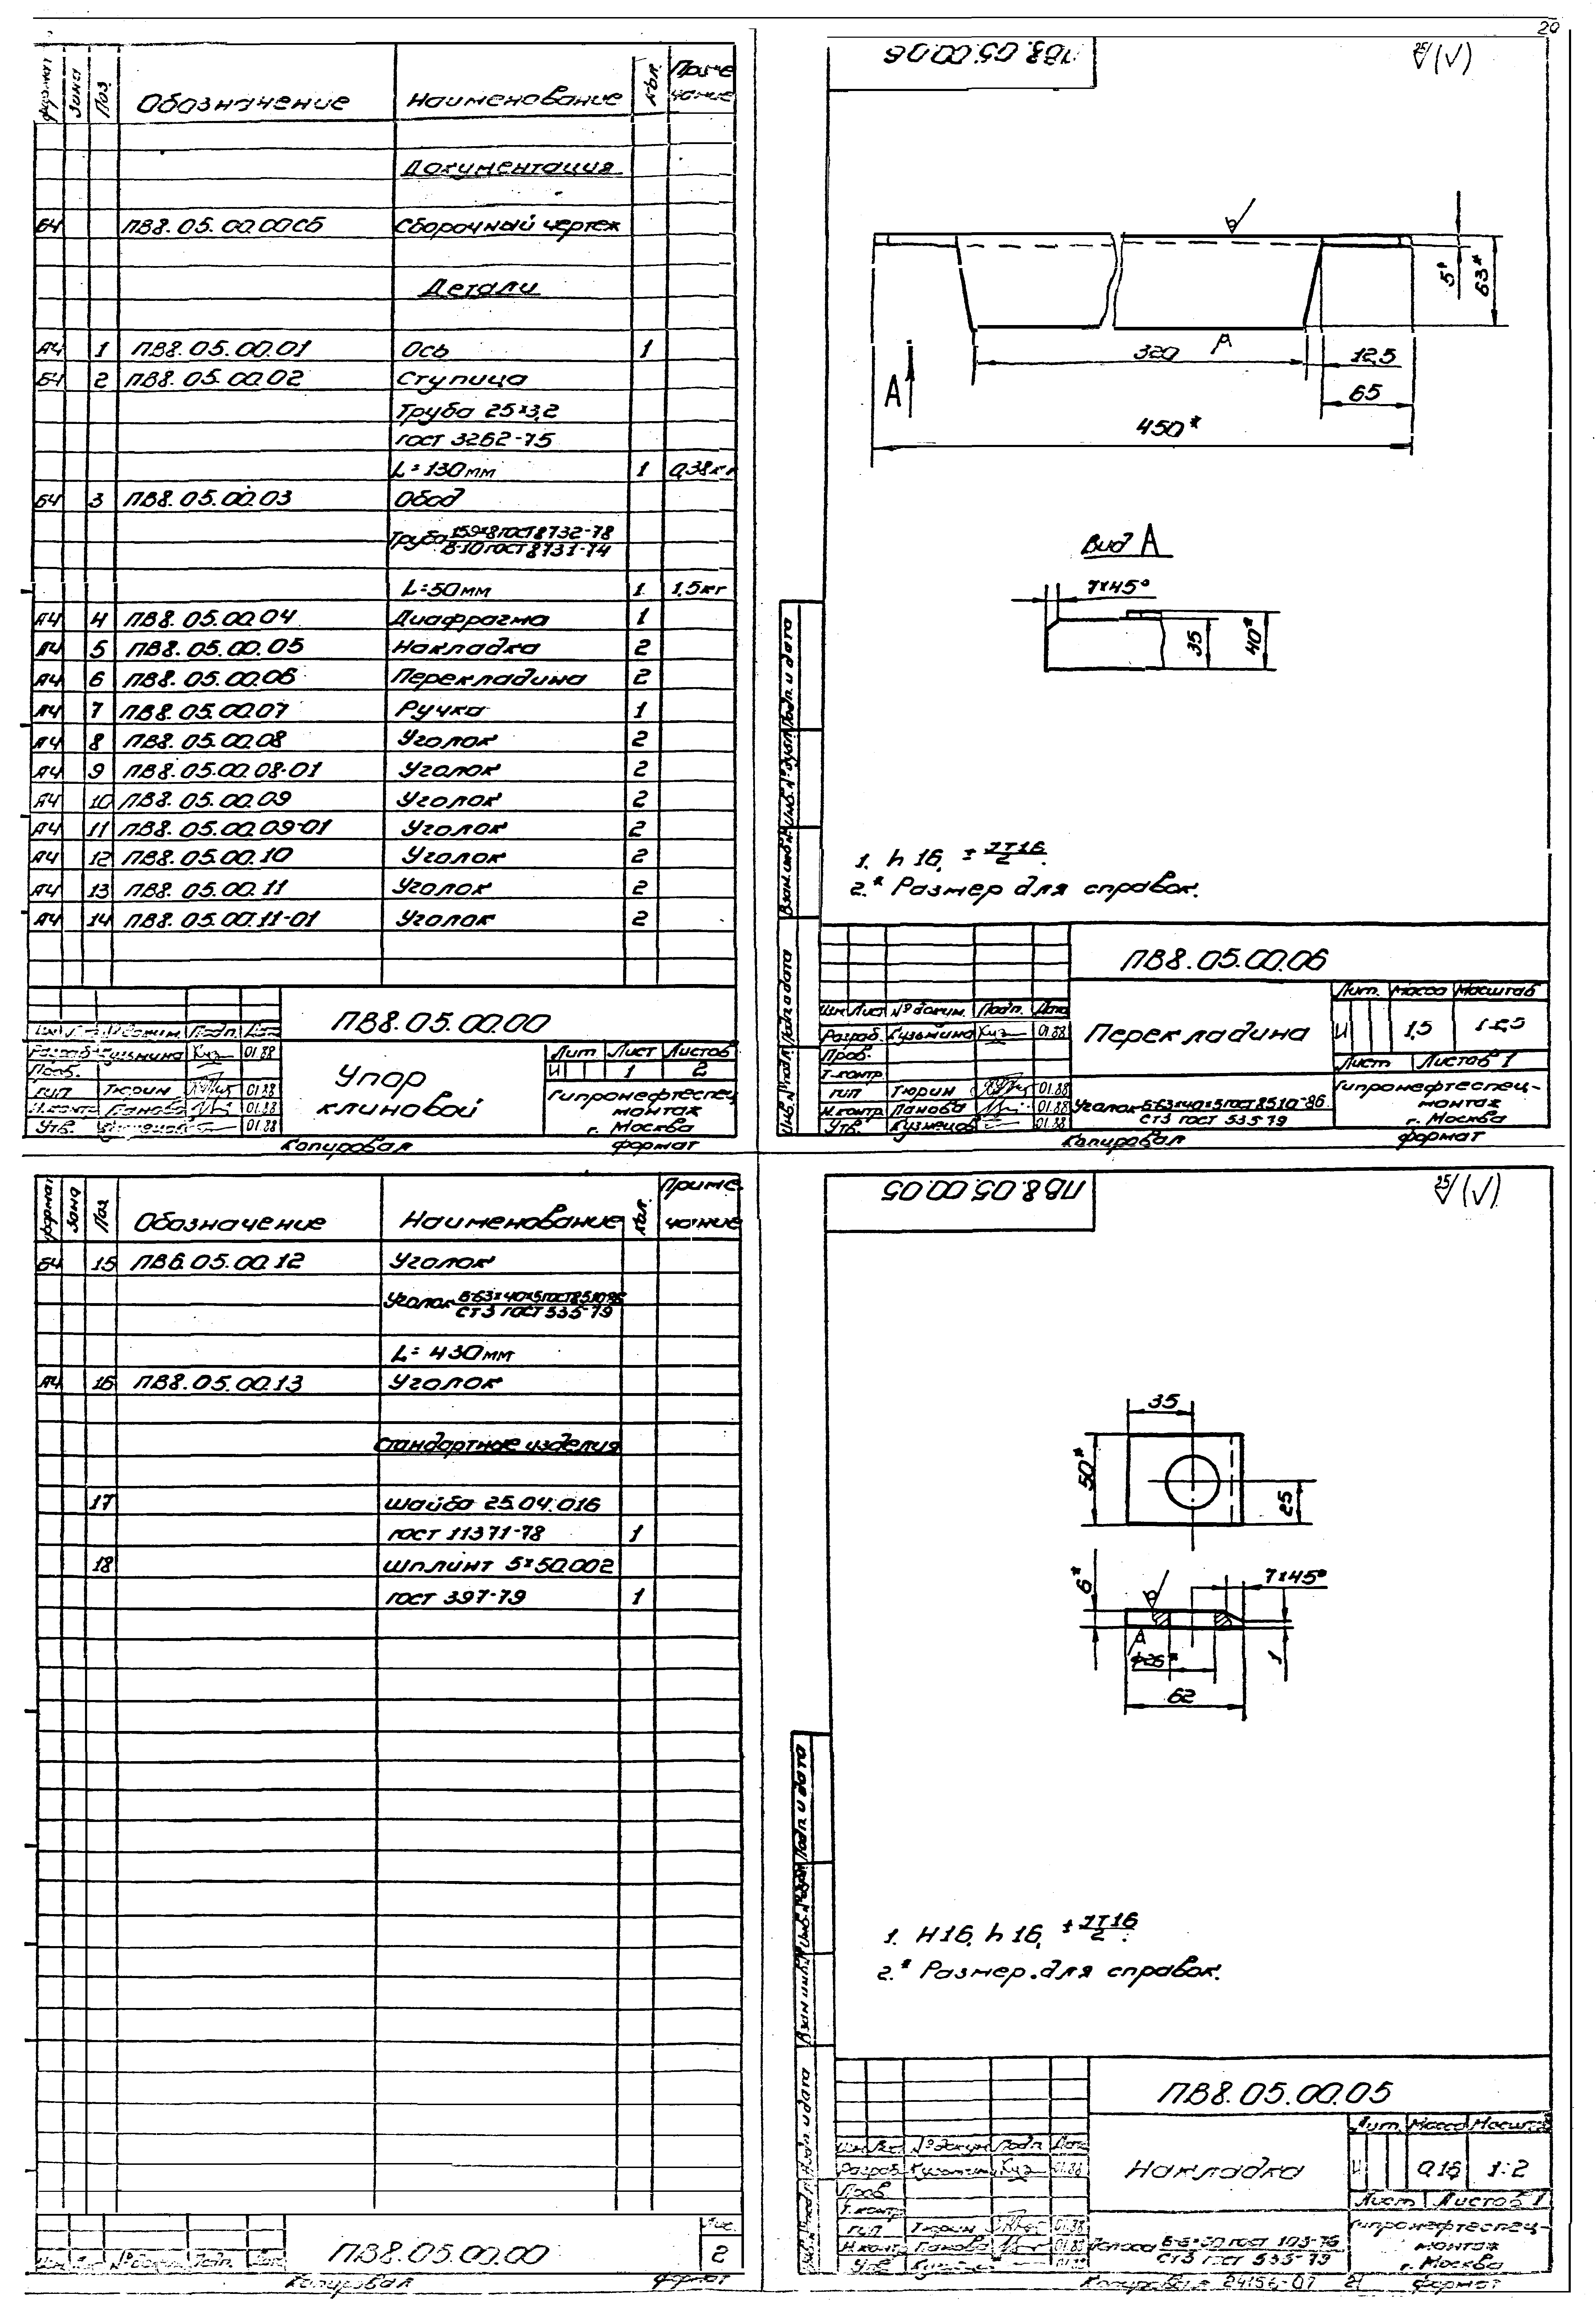 20
Формат Зона Поз. Обозначение Наименование Кол. Приме чание
Документация
БЧ ПВ8.05.00.00СБ Сборочный чертеж
Детали
А4 1 ПВ8.05.00.01 Ось 1
БЧ 2 ПВ8.05.00.02 Ступица
Труба 25×3,2
ГОСТ 3262-75
L=130мм 1 0,38кг
БЧ 3 ПВ8.05.00.03 Обод
Труба 159×8 ГОСТ 8732-78
В-10 ГОСТ 8731-74
L=50мм 1 1,5кг
А4 4 ПВ8.05.00.04 Диафрагма 1
А4 5 ПВ8.05.00.05 Накладка 2
А4 6 ПВ8.05.00.06 Перекладина 2
А4 7 ПВ8.05.00.07 Ручка 1
А4 8 ПВ8.05.00.08 Уголок 2
А4 9 ПВ8.05.00.08-01 Уголок 2
А4 10 ПВ8.05.00.09 Уголок 2
А4 11 ПВ8.05.00.09-01 Уголок 2
А4 12 ПВ8.05.00.10 Уголок 2
А4 13 ПВ8.05.00.11 Уголок 2
А4 14 ПВ8.05.00.11-01 Уголок 2
ПВ8.05.00.00
Изм. Лист № докум. Подп. Дата
Разраб. Кузьмина 01.88
Пров.
ГИП Тюрин 01.88
Н.контр. Панова 01.88
Утв. 01.88
Упор
клиновой
Лит. Лист Листов
И 1 2
Гипронефтеспец-
монтаж
г. Москва
Копировал Формат
ПВ8.05.00.06
25 (√)
5*
63*
320
12,5
65
450*
А
Вид А
7×45°
35
40*
1. h16, ± IT16/2.
2.* Размер для справок.
Подп. и дата
Инв. № дубл.
Взам. инв. №
Подп. и дата
Инв. № подл.
ПВ8.05.00.06
Изм. Лист № докум. Подп. Дата
Разраб. Кузьмина Куз 01.88
Пров.
Т.контр.
ГИП Тюрин 01.88
Н.контр. Панова 01.88
Утв. Кузнецов 01.88
Перекладина
Лит. Масса Масштаб
И 1,5 1:2,5
Лист Листов 1
Уголок Б-63×40×5 ГОСТ 8510-86
Ст3 ГОСТ 535-79
Гипронефтеспец-
монтаж
г. Москва
Копировал Формат
Формат Зона Поз. Обозначение Наименование Кол. Приме- чание
БЧ 15 ПВ6.05.00.12 Уголок
Уголок Б-63×40×5 ГОСТ 8510-86
Ст3 ГОСТ 535-79
L= 430мм
А4 16 ПВ8.05.00.13 Уголок
Стандартные изделия
17 Шайба 25.04.016
ГОСТ 11371-78 1
18 Шплинт 5×50.002
ГОСТ 397-79 1
Изм. Лист № докум. Подп. Дата
ПВ8.05.00.00
Лист
2
Копировал Формат
ПВ8.05.00.05
25 (√)
35
50*
25
6*
7×45°
1
ф26*
62
1. H16, h16, ± IT16/2.
2.* Размер для справок.
Подп. и дата
Инв. № дубл.
Взам. инв. №
Подп. и дата
Инв. № подл.
ПВ8.05.00.05
Изм. Лист № докум. Подп. Дата
Разраб. Кузьмина Куз 01.88
Пров.
Т.контр.
ГИП Тюрин 01.88
Н.контр. Панова 01.88
Утв.
Накладка
Лит. Масса Масштаб
И 0,16 1:2
Лист Листов 1
Полоса Б-6×50 ГОСТ 103-76
Ст3 ГОСТ 535-79
Гипронефтеспец-
монтаж
г. Москва
Копировал 24156-07 21 Формат